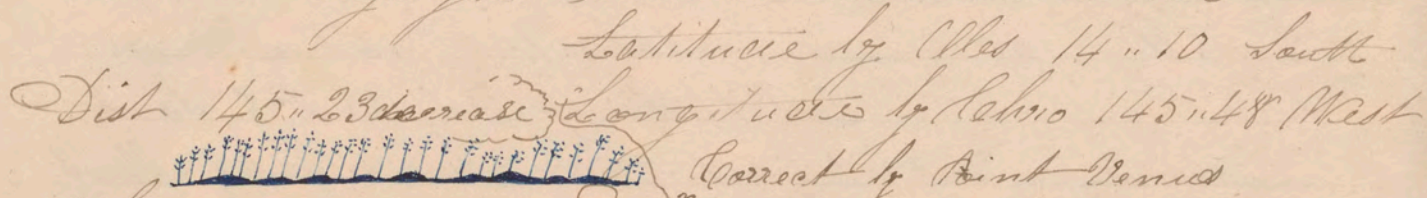 Latitude by Obs 14 " 10 South
Dist 145 " 23 decrease Longitude by Chro 145 " 48 West
Correct by Point Venus